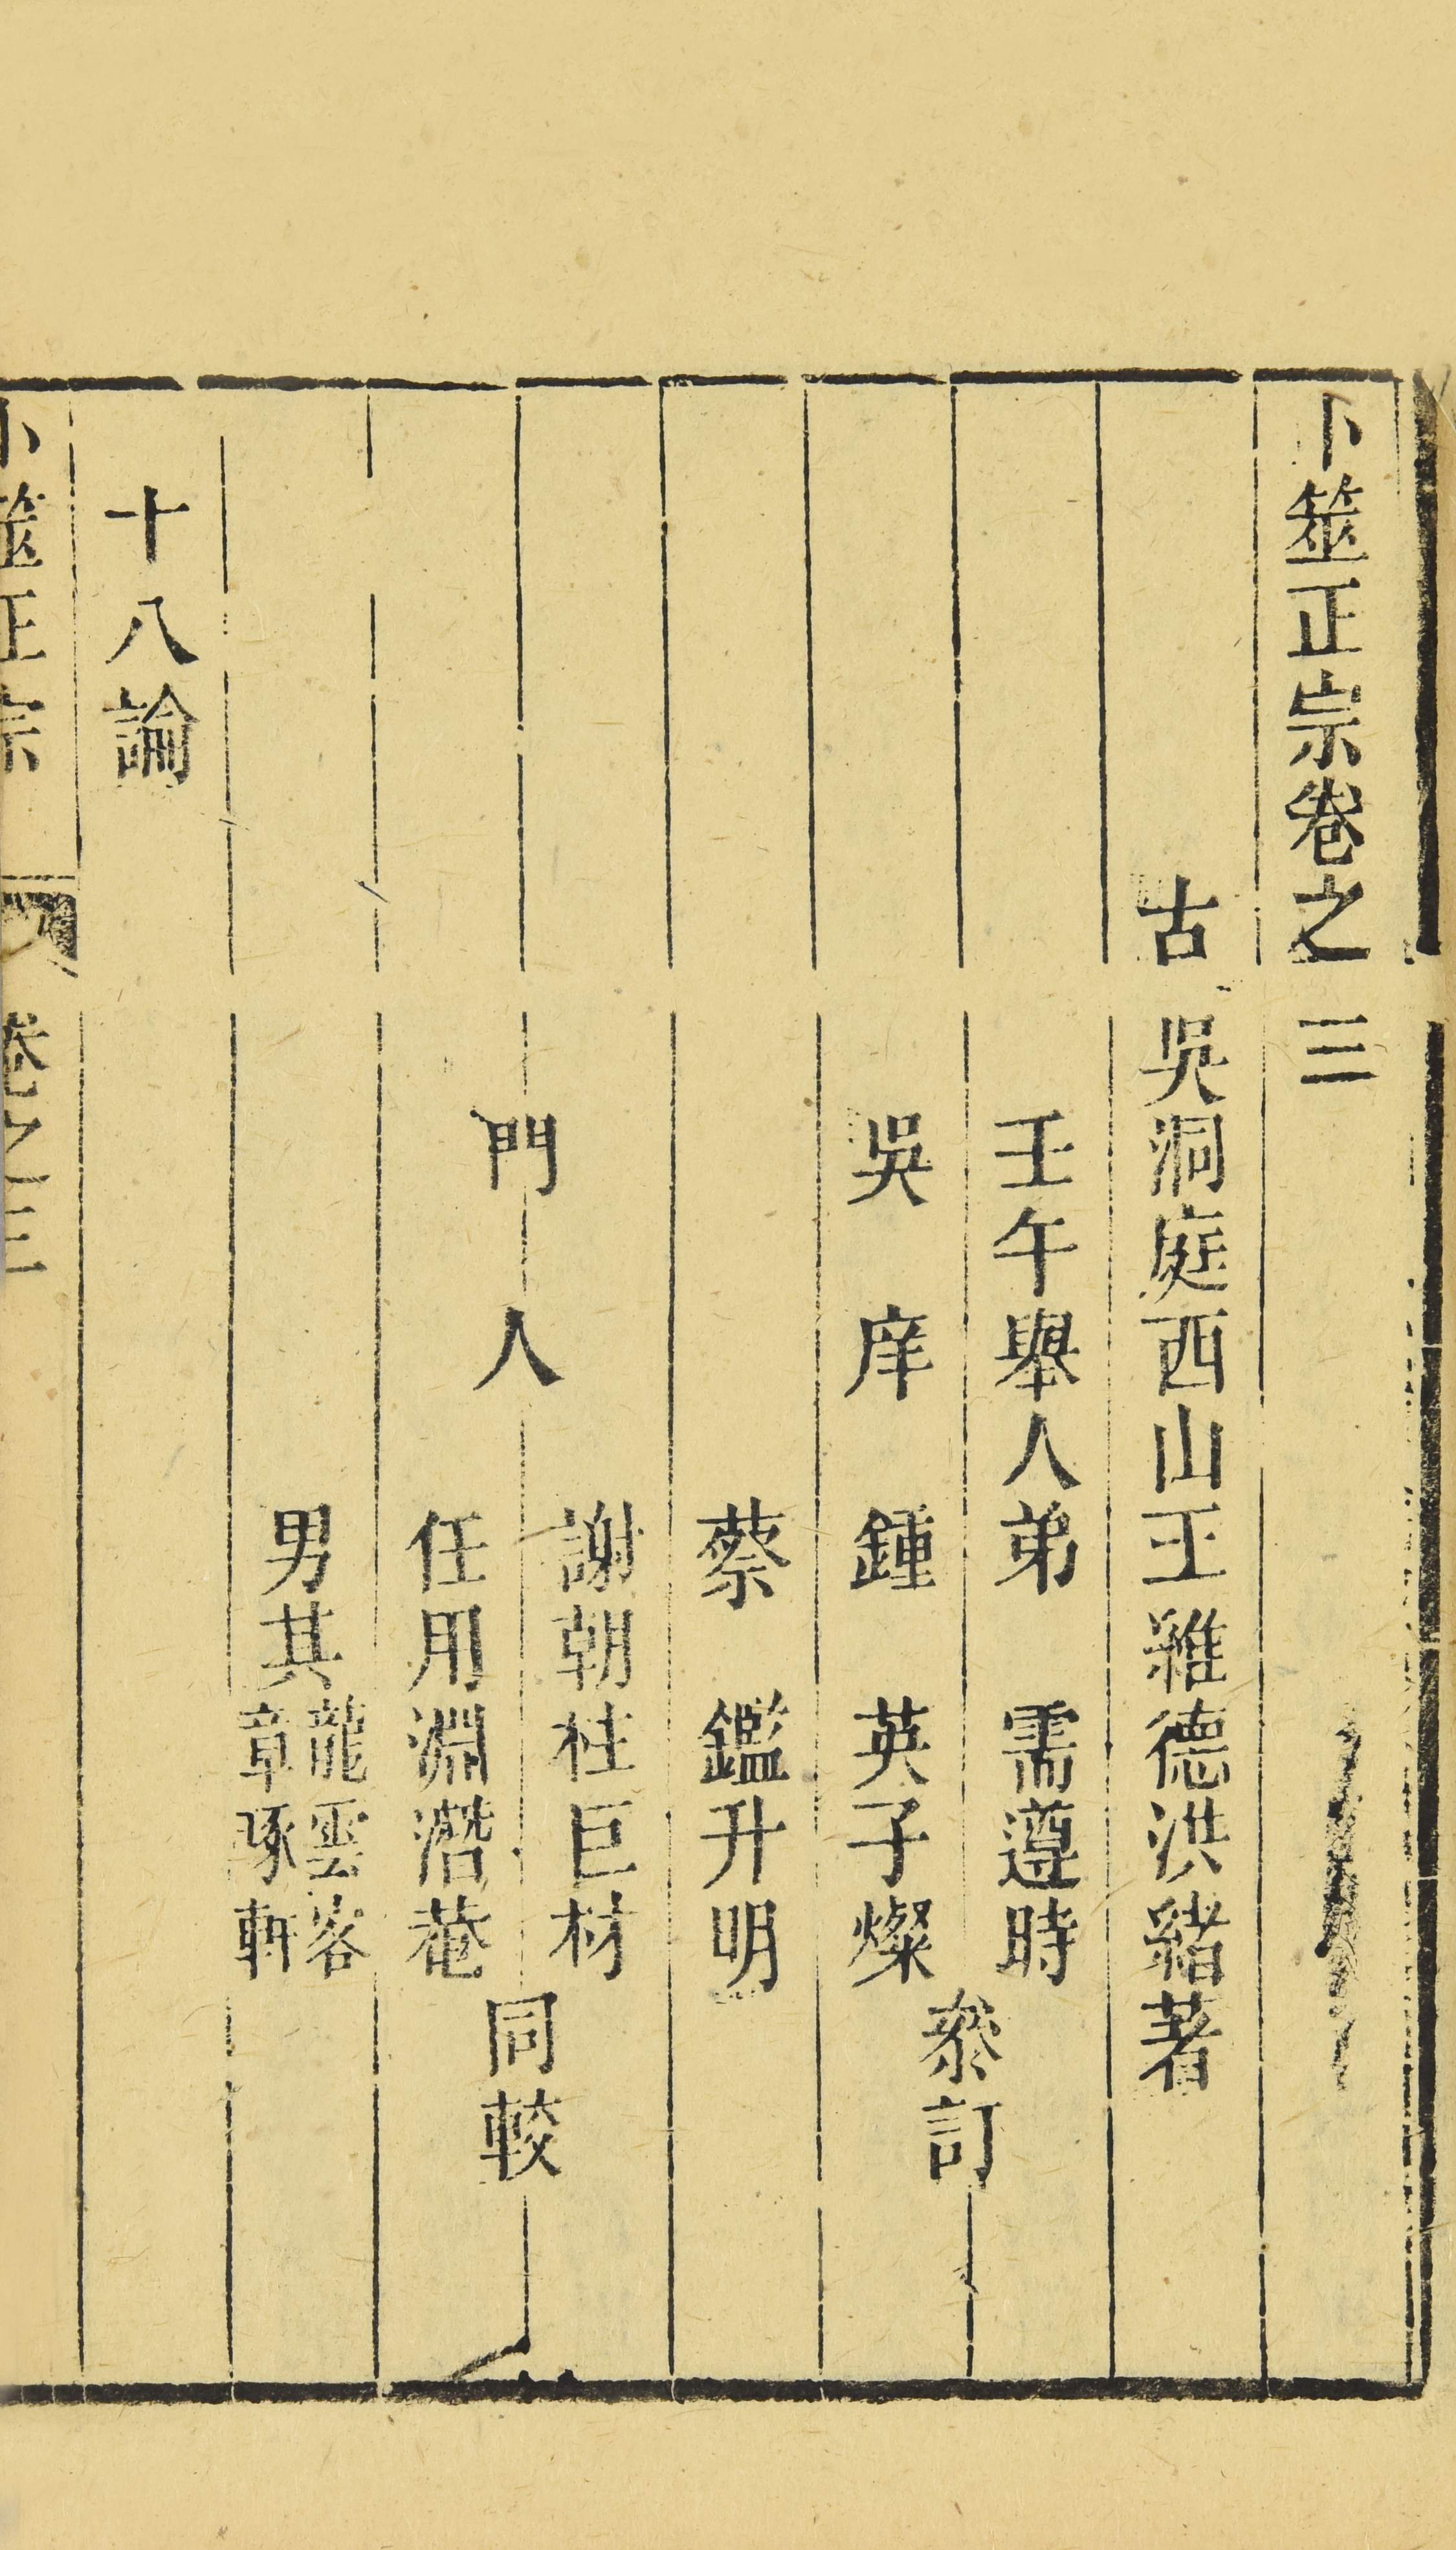 卜筮正宗卷之三
古吳洞庭西山王維德洪緒著
壬午舉人弟 需遵時
吳 庠 鍾 英子燦
叅訂
蔡 鑑升明
謝朝柱巨材
門 人
同較
任用淵潛菴
男其龍雲客
章琢軒
十八論
卜筮正宗 卷之三